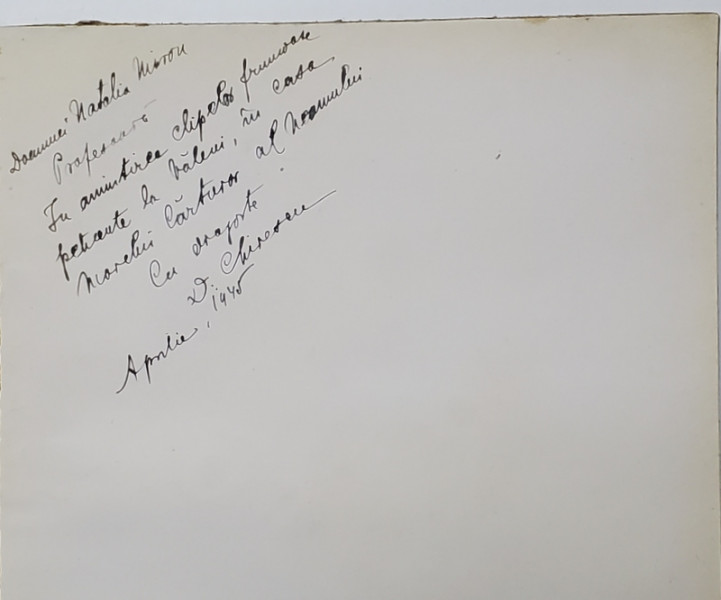 Doamnei Natalia Miron
Profesoară
În amintirea clipelor frumoase
petrecute la Văleni, în casa
Marelui Cărturar al Neamului
Cu dragoste
D. Chirescu
Aprilie, 1945